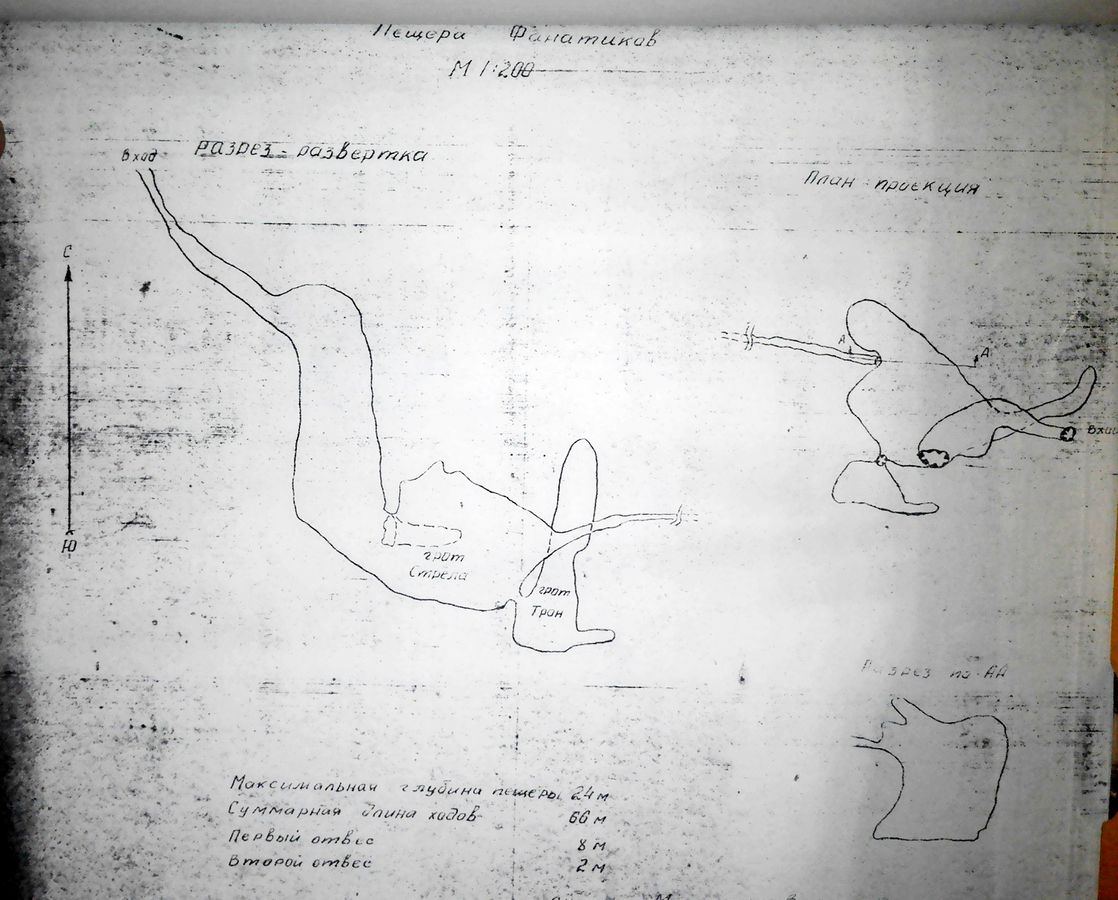 Пещера Фанатиков
М 1:200
Вход
Разрез - развертка
План - проекция
С
Ю
А
А
Вход
грот
Стрела
грот
Трон
Разрез по АА
Максимальная глубина пещеры 24 м
Суммарная длина ходов 66 м
Первый отвес 8 м
Второй отвес 2 м